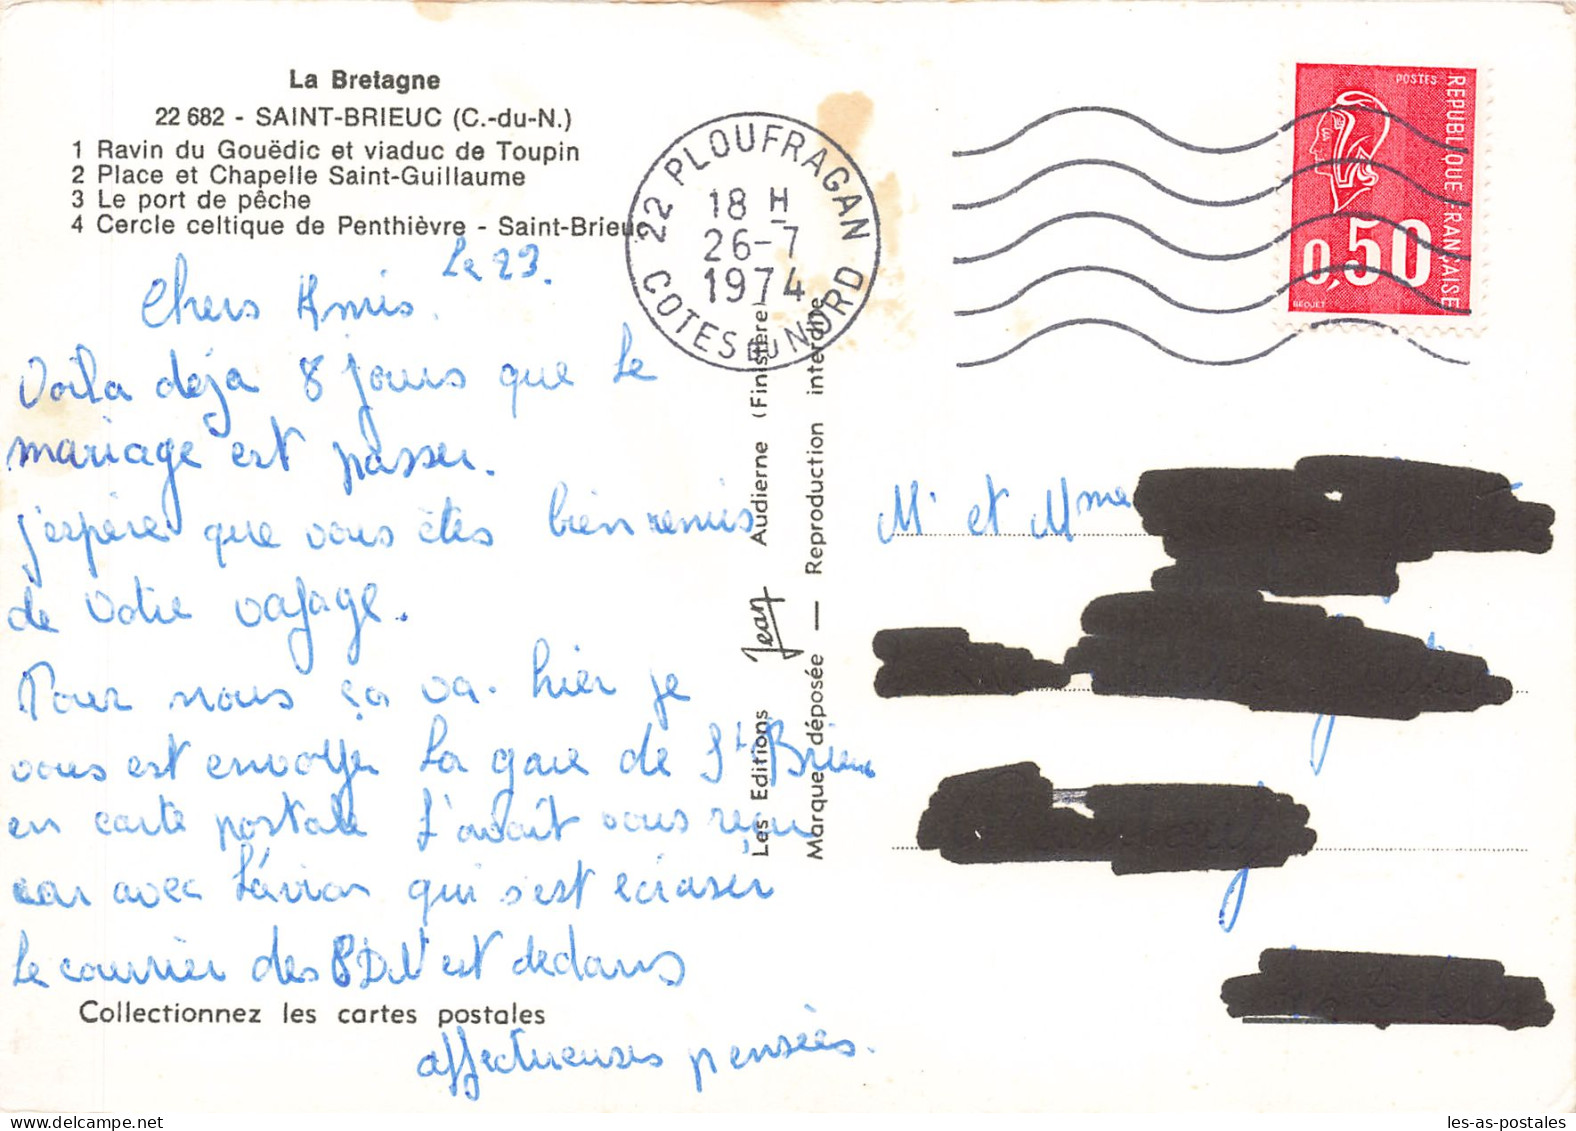 La Bretagne
22 682 - SAINT-BRIEUC (C.-du-N.)
1 Ravin du Gouëdic et viaduc de Toupin
2 Place et Chapelle Saint-Guillaume
3 Le port de pêche
4 Cercle celtique de Penthièvre - Saint-Brieuc
Le 23.
Chers Amis.
Voila déja 8 jours que le
mariage est passer.
j'espère que vous êtes bien remis
de votre voyage.
Pour nous ça va. hier je
vous est envoyer la gare de St Brieuc
en carte postale l'avait vous reçu
car avec l'avion qui s'est écraser
le courrier des CDN est dedans
affectueuses pensées.
Collectionnez les cartes postales
22 PLOUFRAGAN
18 H
26-7
1974
COTES DU NORD
Les Editions Jean Audierne (Finistère)
Marque déposée — Reproduction interdite
POSTES
REPUBLIQUE FRANÇAISE
0,50
BEQUET
Mr et Mme
les-as-postales